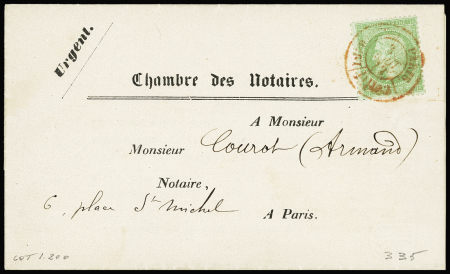 Urgent.
Chambre des Notaires.
A Monsieur
Monsieur Courot (Armand)
Notaire,
6, place St Michel
A Paris.
COT 1.200
335